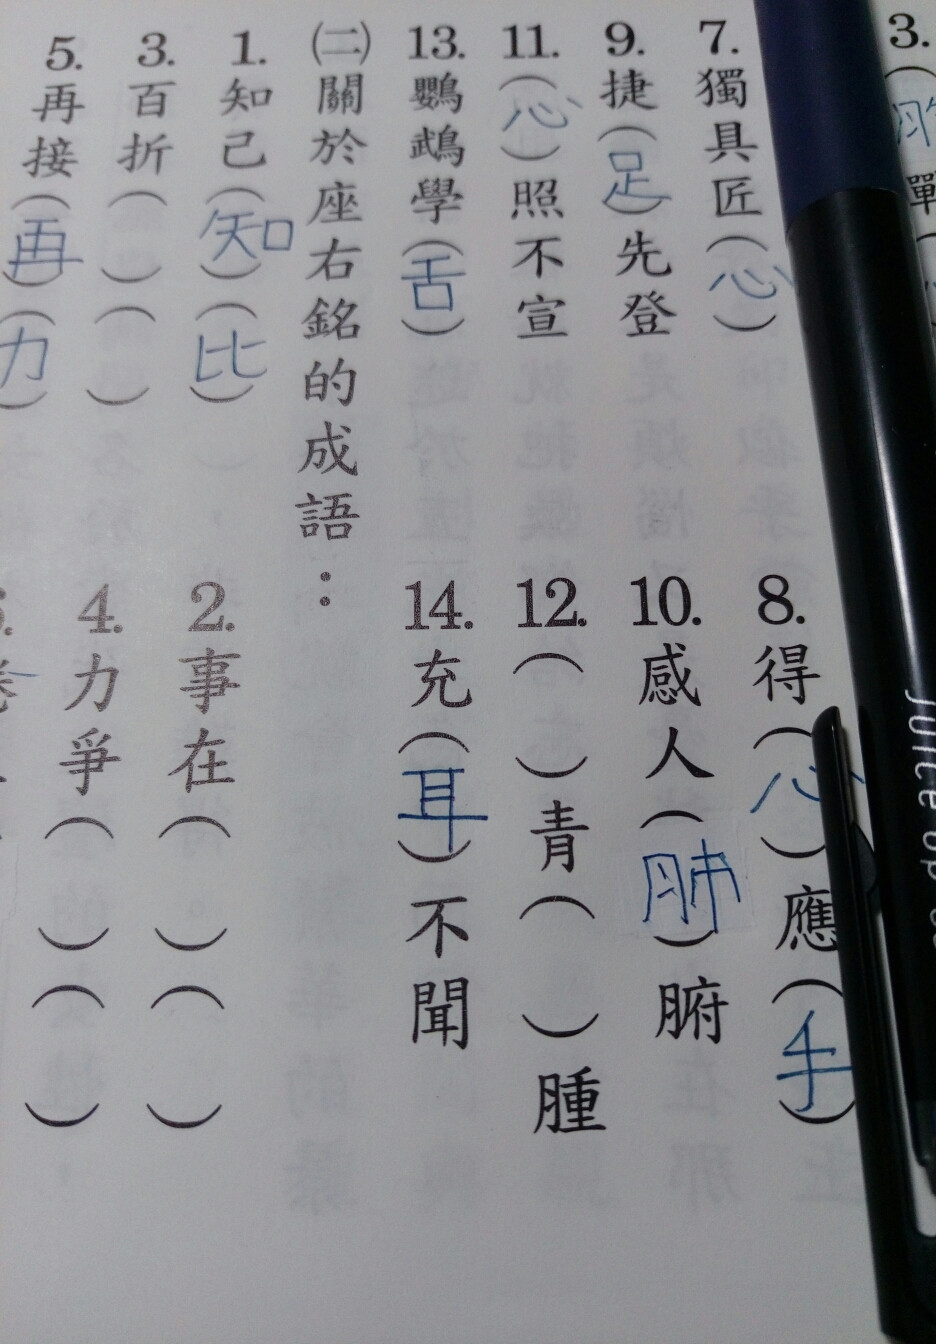 3.
戰
7.獨具匠(心)
8.得(心)應(手)
9.捷(足)先登
10.感人(肺)腑
11.(心)照不宣
12.( )青( )腫
13.鸚鵡學(舌)
14.充(耳)不聞
㈡關於座右銘的成語：
1.知己(知)(比)
2.事在( )( )
3.百折( )( )
4.力爭( )( )
5.再接(再)(力)
juice up